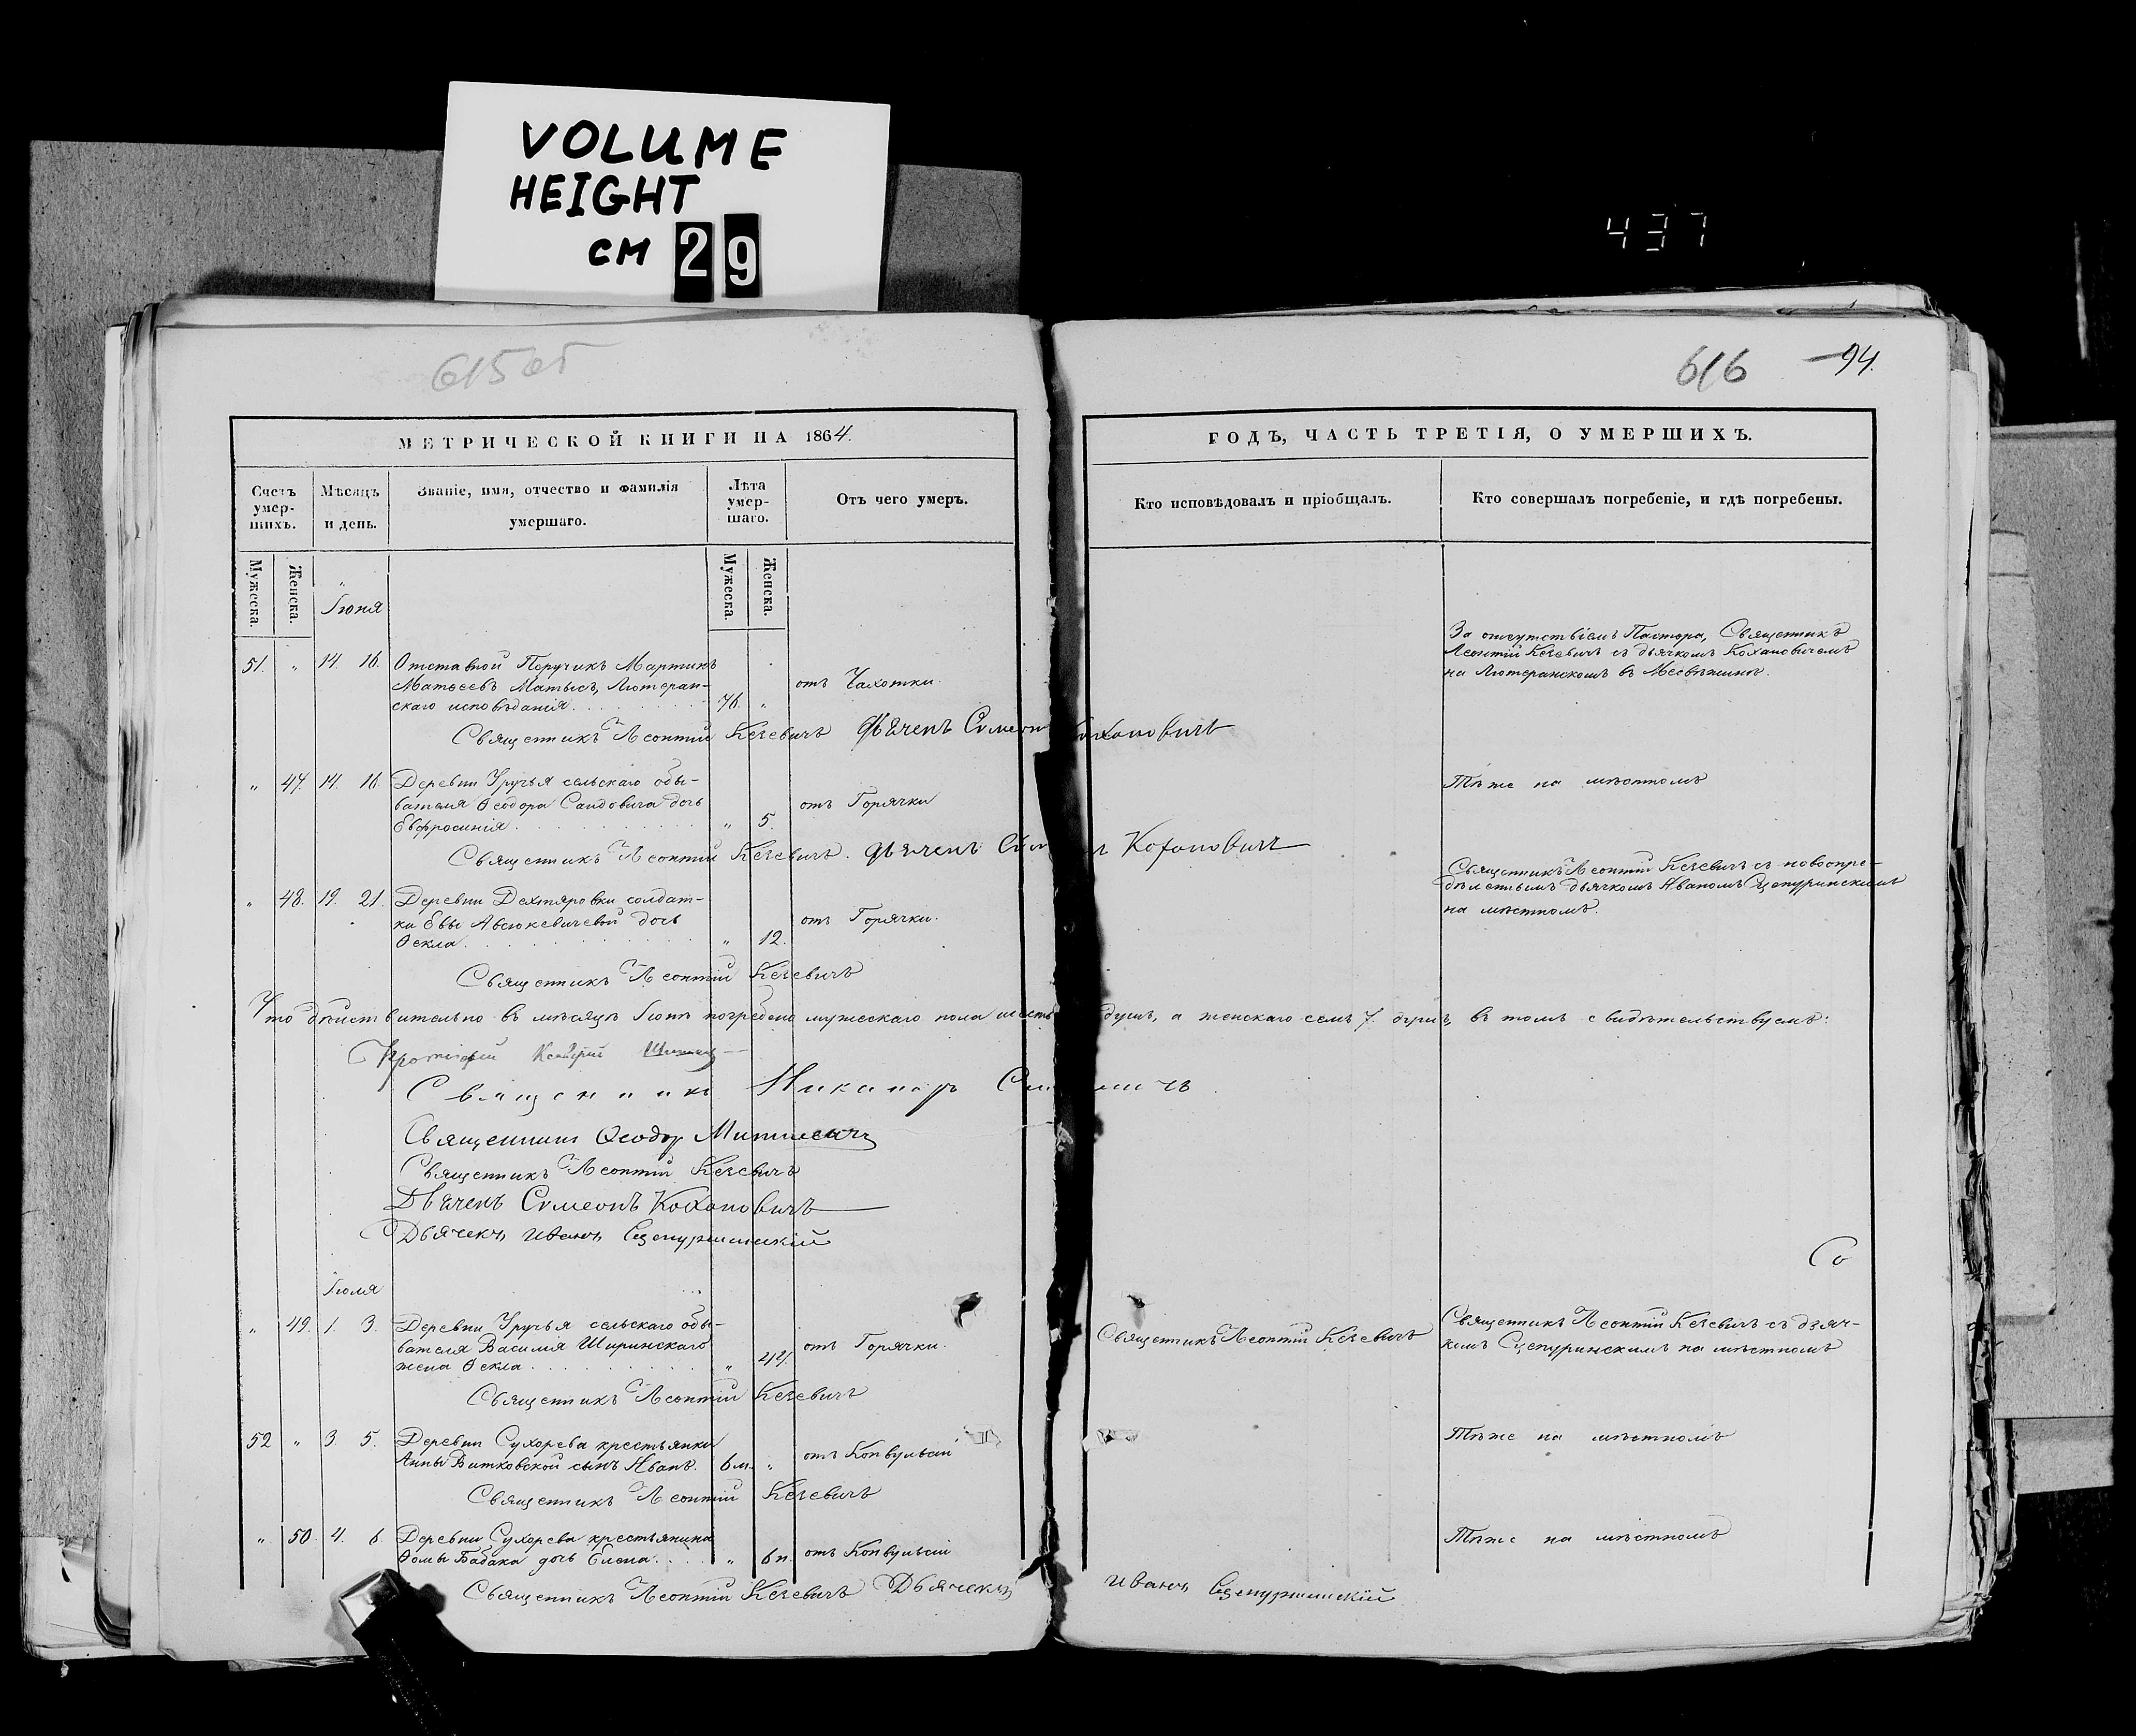 VOLUME
HEIGHT
CM 29
437
615об
616 94.
МЕТРИЧЕСКОЙ КНИГИ НА 1864.
ГОДЪ, ЧАСТЬ ТРЕТІЯ, О УМЕРШИХЪ.
Счетъ умер-шихъ.
Мѣсяцъ и день.
Званіе, имя, отчество и фамилія умершаго.
Лѣта умер-шаго.
Отъ чего умеръ.
Кто исповѣдовалъ и пріобщалъ.
Кто совершалъ погребеніе, и гдѣ погребены.
Мужеска.
Женска.
Мужеска.
Женска.
Іюня
51. " 14. 16. Отставной Поручикъ Мартинъ
Матвеевъ Матысъ, Лютеран-
скаго исповѣданія 76. " отъ Чахотки.
За отсутствіемъ Пастора, Священникъ
Леонтій Кечевичъ съ дьячкомъ Кохановичемъ
на Лютеранскомъ въ
Священникъ Леонтій Кечевичъ Дьячекъ Симеонъ Кохановичъ
" 47. 14. 16. Деревни Уручья сельскаго обы-
вателя Ѳеодора Саидовича дочь
Евфросинія " 5. отъ Горячки
Тѣже на мѣстномъ
Священникъ Леонтій Кечевичъ. Дьячекъ Симеонъ Кохановичъ
" 48. 19. 21. Деревни Дехтяровки солдат-
ки Евы Авсюкевичевой дочь
Ѳекла " 12. отъ Горячки.
Священникъ Леонтій Кечевичъ съ новоопре-
дѣленнымъ дьячкомъ Иваномъ Сцепуринскимъ
на мѣстномъ.
Священникъ Леонтій Кечевичъ
Что дѣйствительно въ мѣсяцѣ Іюнѣ погребено мужескаго пола шесть душъ, а женскаго семь 7. душъ, въ томъ свидѣтельствуемъ:
Протоіерей
Священникъ Никаноръ
Священникъ Ѳеодоръ
Священникъ Леонтій Кечевичъ
Дьячекъ Симеонъ Кохановичъ
Дьячекъ Иванъ Сцепуринскій
Со
Іюля
" 49. 1. 3. Деревни Уручья сельскаго обы-
вателя Василія Ширинскаго
жена Ѳекла " 42. отъ Горячки.
Священникъ Леонтій Кечевичъ
Священникъ Леонтій Кечевичъ съ дьяч-
комъ Сцепуринскимъ на мѣстномъ
Священникъ Леонтій Кечевичъ
52 " 3. 5. Деревни Сухорева крестьянки
Анны Витковской сынъ Иванъ. 6 м. " отъ Конвульсій
Тѣже на мѣстномъ
Священникъ Леонтій Кечевичъ
" 50. 4. 6. Деревни Сухорева крестьянина
Ѳомы Бабака дочь Елена " 6 н. отъ Конвульсій
Тѣже на мѣстномъ
Священникъ Леонтій Кечевичъ Дьячекъ Иванъ Сцепуринскій